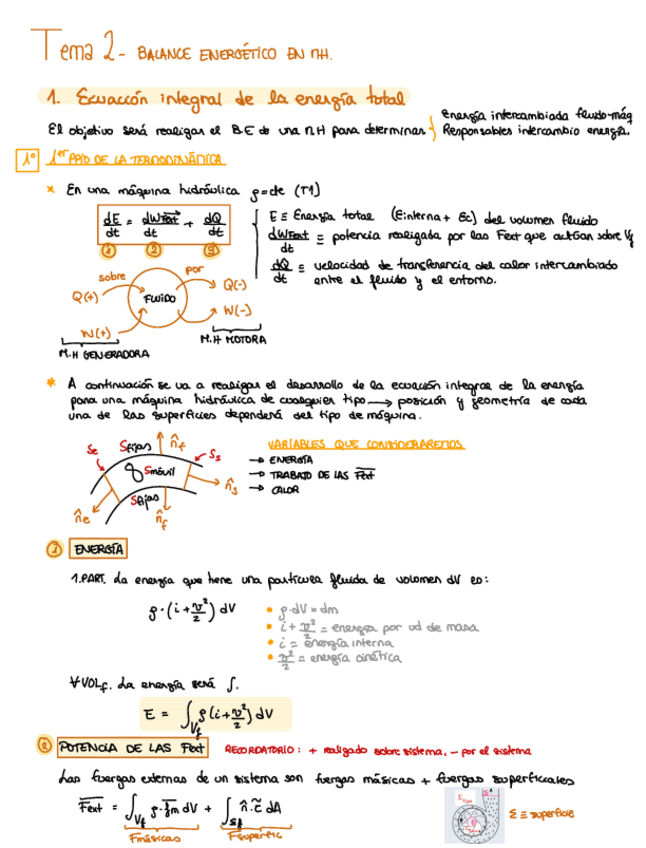 Tema 2- BALANCE ENERGÉTICO EN MH.
1. Ecuación integral de la energía total
El objetivo será realizar el BE de una MH para determinar
energía intercambiada fluido-máq
Responsables intercambio energía.
1º 1er PPIO DE LA TERMODINÁMICA
* En una máquina hidráulica ρ=cte (T1)
dE/dt = dWFext/dt + dQ/dt
① ② ③
E ≡ Energía total (Einterna + Ec) del volumen fluido
dWFext/dt ≡ potencia realizada por las Fext que actúan sobre Vf
dQ/dt ≡ velocidad de transferencia del calor intercambiado
entre el fluido y el entorno.
sobre
por
Q(+)
FLUIDO
Q(-)
W(-)
W(+)
M.H GENERADORA
M.H MOTORA
* A continuación se va a realizar el desarrollo de la ecuación integral de la energía
para una máquina hidráulica de cualquier tipo → posición y geometría de cada
una de las superficies dependerá del tipo de máquina.
Se
Sfijas
n̂f
Ss
Smóvil
n̂s
Sfijas
n̂e
n̂f
VARIABLES QUE CONSIDERAREMOS
→ ENERGÍA
→ TRABAJO DE LAS Fext
→ CALOR
① ENERGÍA
1.PART. La energía que tiene una partícula fluida de volumen dV es:
ρ·(i+v²/2) dV
• ρ·dV = dm
• i + v²/2 = energía por ud de masa
• i = energía interna
• v²/2 = energía cinética
∀VOLf. La energía será ∫.
E = ∫Vf ρ(i+v²/2) dV
② POTENCIA DE LAS Fext RECORDATORIO: + realizado sobre sistema, - por el sistema
Las fuerzas externas de un sistema son fuerzas másicas + fuerzas superficiales
Fext = ∫Vf ρ·fm dV + ∫Sf n̂·τ̃ dA
Fmásicas
Fsuperfic
Σ ≡ superficie